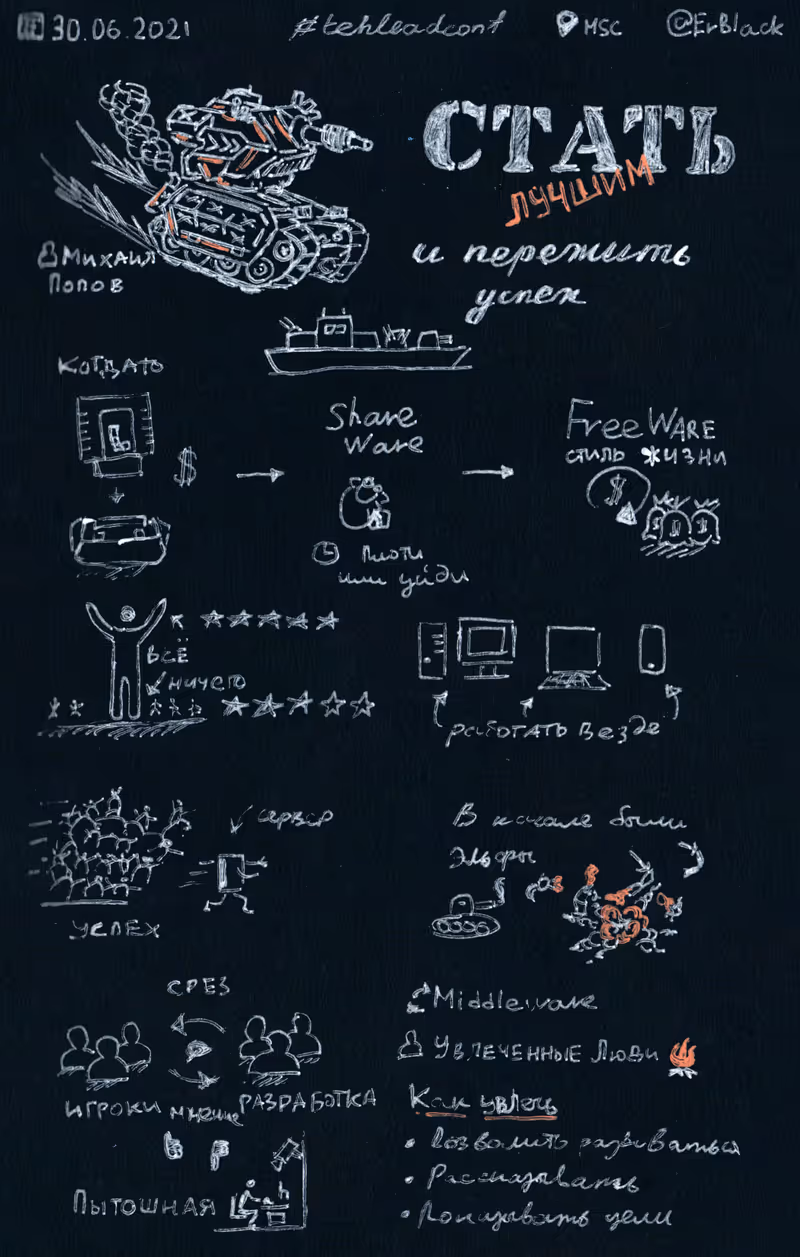 30.06.2021
#techleadconf
MSC
@ErBlack
СТАТЬ
ЛУЧШИМ
и пережить
успех
Михаил
Попов
КОГДАТО
$
Share
Ware
плоти
или уйди
FreeWARE
СТИЛЬ ЖИЗНИ
$
ВСЁ
НИЧЕГО
РАБОТАТЬ Везде
УСПЕХ
сервер
В начале были
Эльфы
СРЕЗ
ИГРОКИ
мнение
РАЗРАБОТКА
ПЫТОШНАЯ
Middleware
УВЛЕЧЕННЫЕ Люди
Как увлечь
• Позволить развиваться
• Рассказывать
• Показывать цели